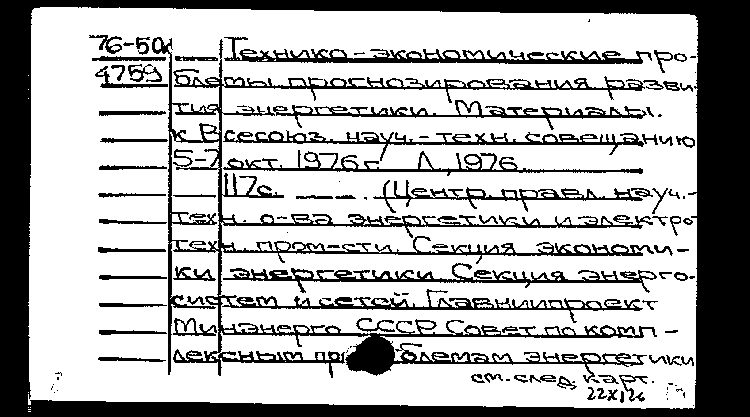 76-50к Технико-экономические про-
4759 блемы прогнозирования разви-
тия энергетики. Материалы.
к Всесоюз. науч.-техн. совещанию
5-7 окт. 1976г Л., 1976
117с. (Центр. правл. науч.-
техн. о-ва энергетики и электро
техн. пром-сти. Секция экономи-
ки энергетики Секция энерго-
систем и сетей. Главниипроект
Минэнерго СССР Совет по комп-
лексным пр блемам энергетики
см. след. карт.